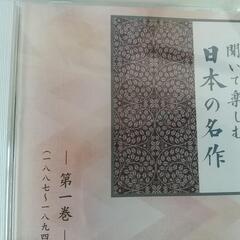 聞いて楽しむ
日本の名作
― 第一巻 ―
(一八八七〜一八九四